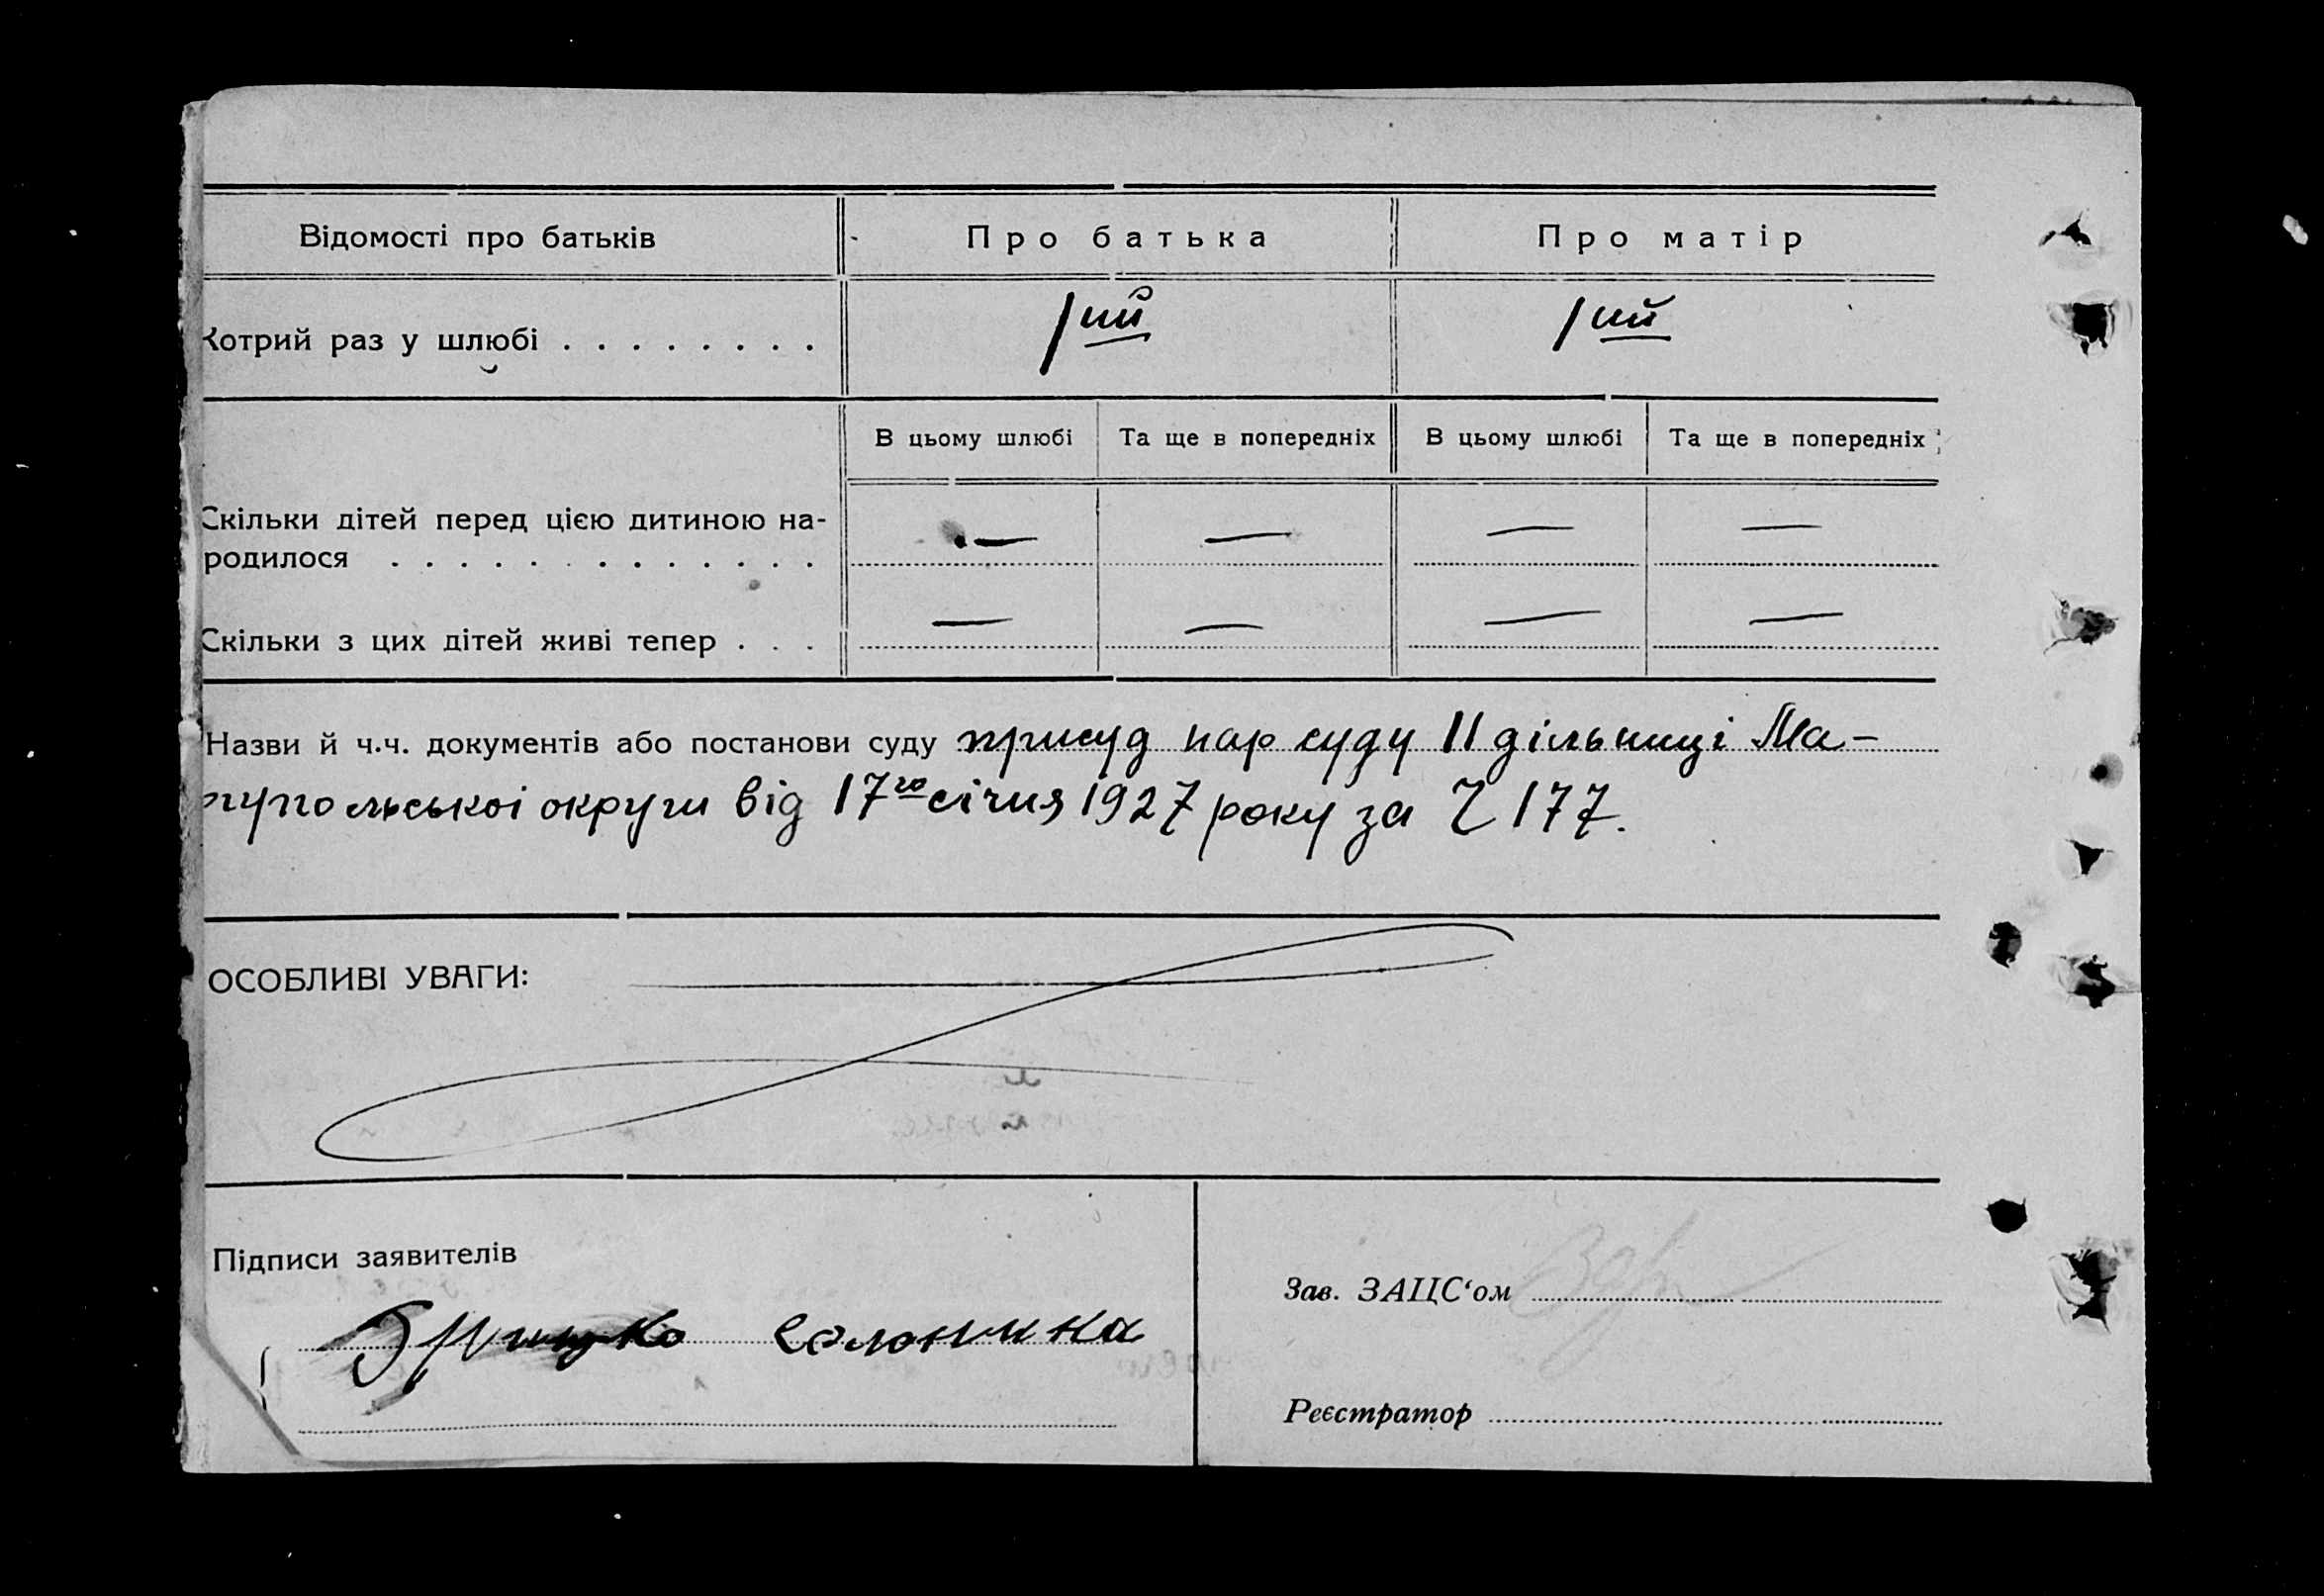 Відомості про батьків Про батька Про матір
Котрий раз у шлюбі . . . . . . . . 1ий 1ий
В цьому шлюбі Та ще в попередніх В цьому шлюбі Та ще в попередніх
Скільки дітей перед цією дитиною на-
родилося . . . . . . . . . . . . . — — — —
Скільки з цих дітей живі тепер . . . — — — —
Назви й ч.ч. документів або постанови суду присуд нар суду II дільниці Ма-
рупольської округи від 17го січня 1927 року за Ч 177.
ОСОБЛИВІ УВАГИ:
Підписи заявителів
Зав. ЗАЦС‘ом
солонина
Реєстратор